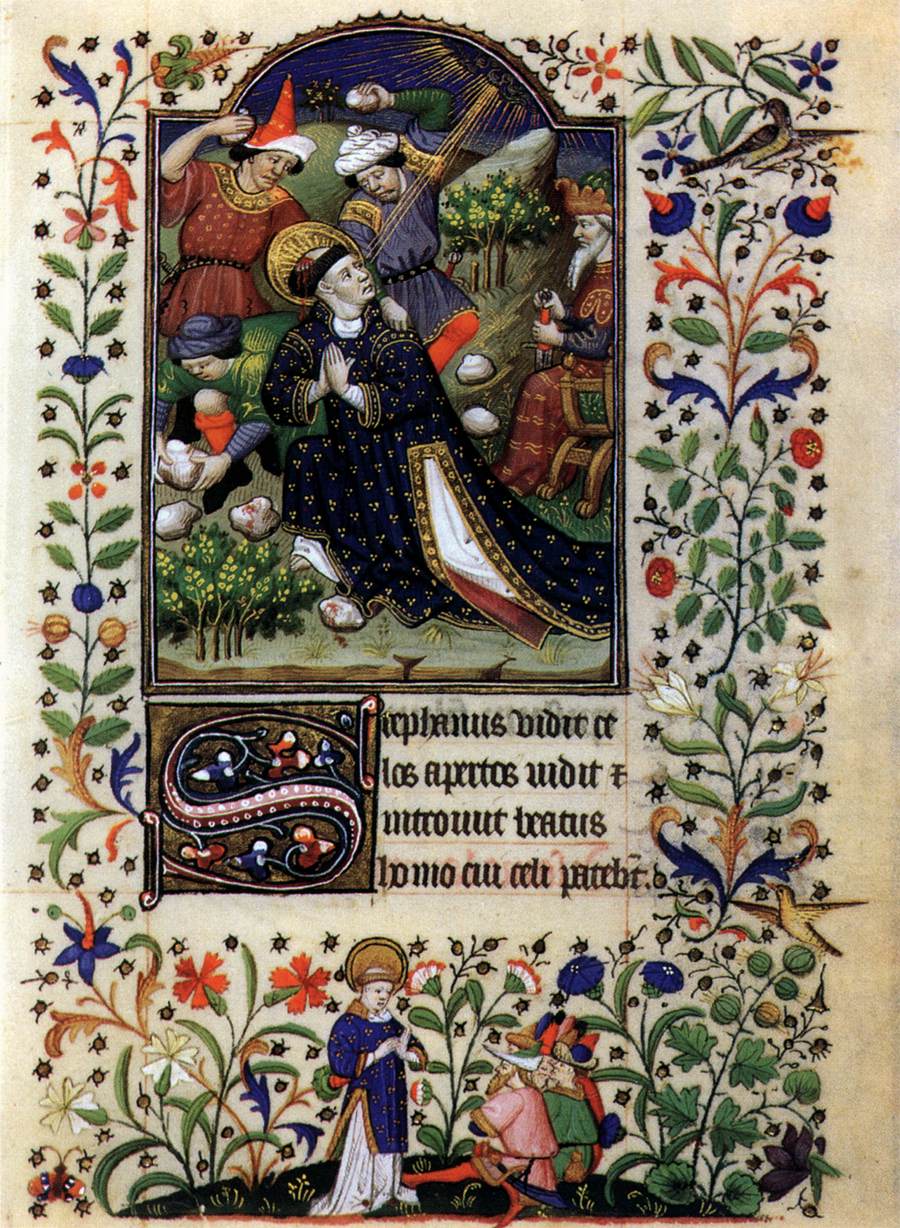 Stephanus vidit ce
los apertos uidit ⁊
introiuit beatus
homo cui celi patebt̄. d